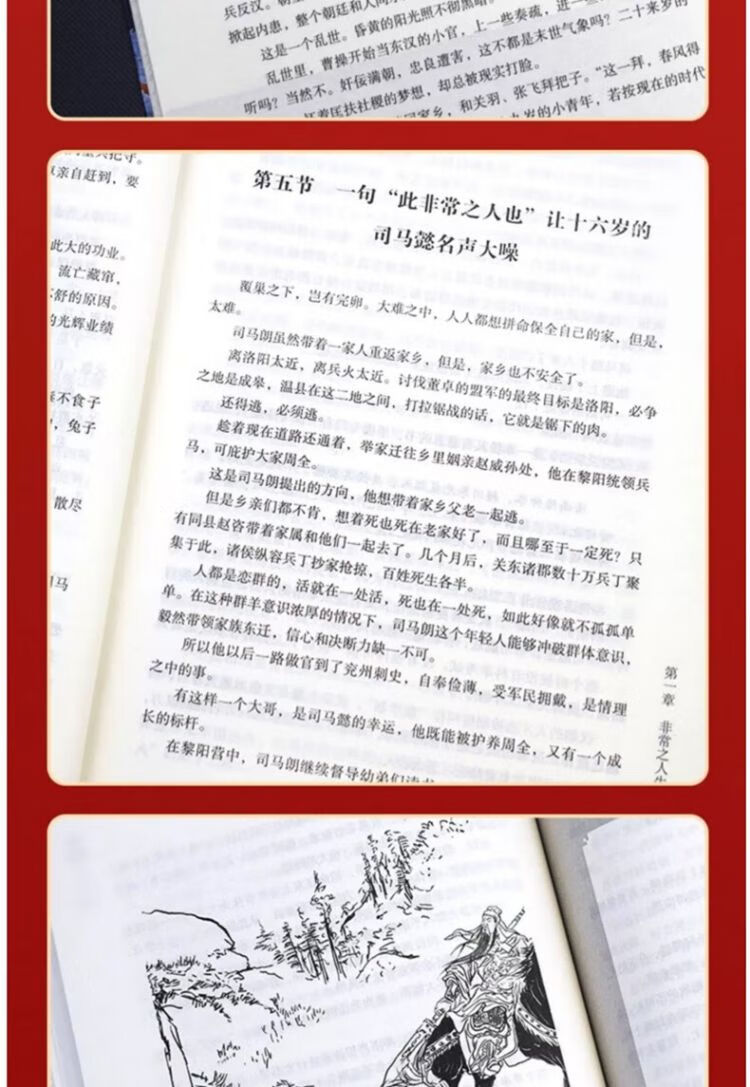 兵反汉。
掀起内患，整个朝廷和人间
这是一个乱世。昏黄的阳光照不彻黑暗
乱世里，曹操开始当东汉的小官，上一些奏疏，进一
听吗？当然不。奸佞满朝，忠良遭害，这不都是末世气象吗？二十来岁的
匡扶社稷的梦想，却总被现实打脸。
家乡，和关羽、张飞拜把子。“这一拜，春风得
岁的小青年，若按现在的时代
亲自赶到，要
此大的功业。
流亡藏窜，
舒的原因。
的光辉业绩
不食子
，兔子
散尽
司马
第五节 一句“此非常之人也”让十六岁的
司马懿名声大噪
覆巢之下，岂有完卵。大难之中，人人都想拼命保全自己的家，但是，
太难。
司马朗虽然带着一家人重返家乡，但是，家乡也不安全了。
离洛阳太近，离兵火太近。讨伐董卓的盟军的最终目标是洛阳，必争
之地是成皋，温县在这二地之间，打拉锯战的话，它就是锯下的肉。
还得逃，必须逃。
趁着现在道路还通着，举家迁往乡里姻亲赵威孙处，他在黎阳统领兵
马，可庇护大家周全。
这是司马朗提出的方向，他想带着家乡父老一起逃。
但是乡亲们都不肯，想着死也死在老家好了，而且哪至于一定死？只
有同县赵咨带着家属和他们一起去了。几个月后，关东诸郡数十万兵丁聚
集于此，诸侯纵容兵丁抄家抢掠，百姓死生各半。
人都是恋群的，活就在一处活，死也在一处死，如此好像就不孤孤单
单。在这种群羊意识浓厚的情况下，司马朗这个年轻人能够冲破群体意识，
毅然带领家族东迁，信心和决断力缺一不可。
所以他以后一路做官到了兖州刺史，自奉俭薄，受军民拥戴，是情理
之中的事。
有这样一个大哥，是司马懿的幸运，他既能被护养周全，又有一个成
长的标杆。
在黎阳营中，司马朗继续督导幼弟们读
第一章 非常之人